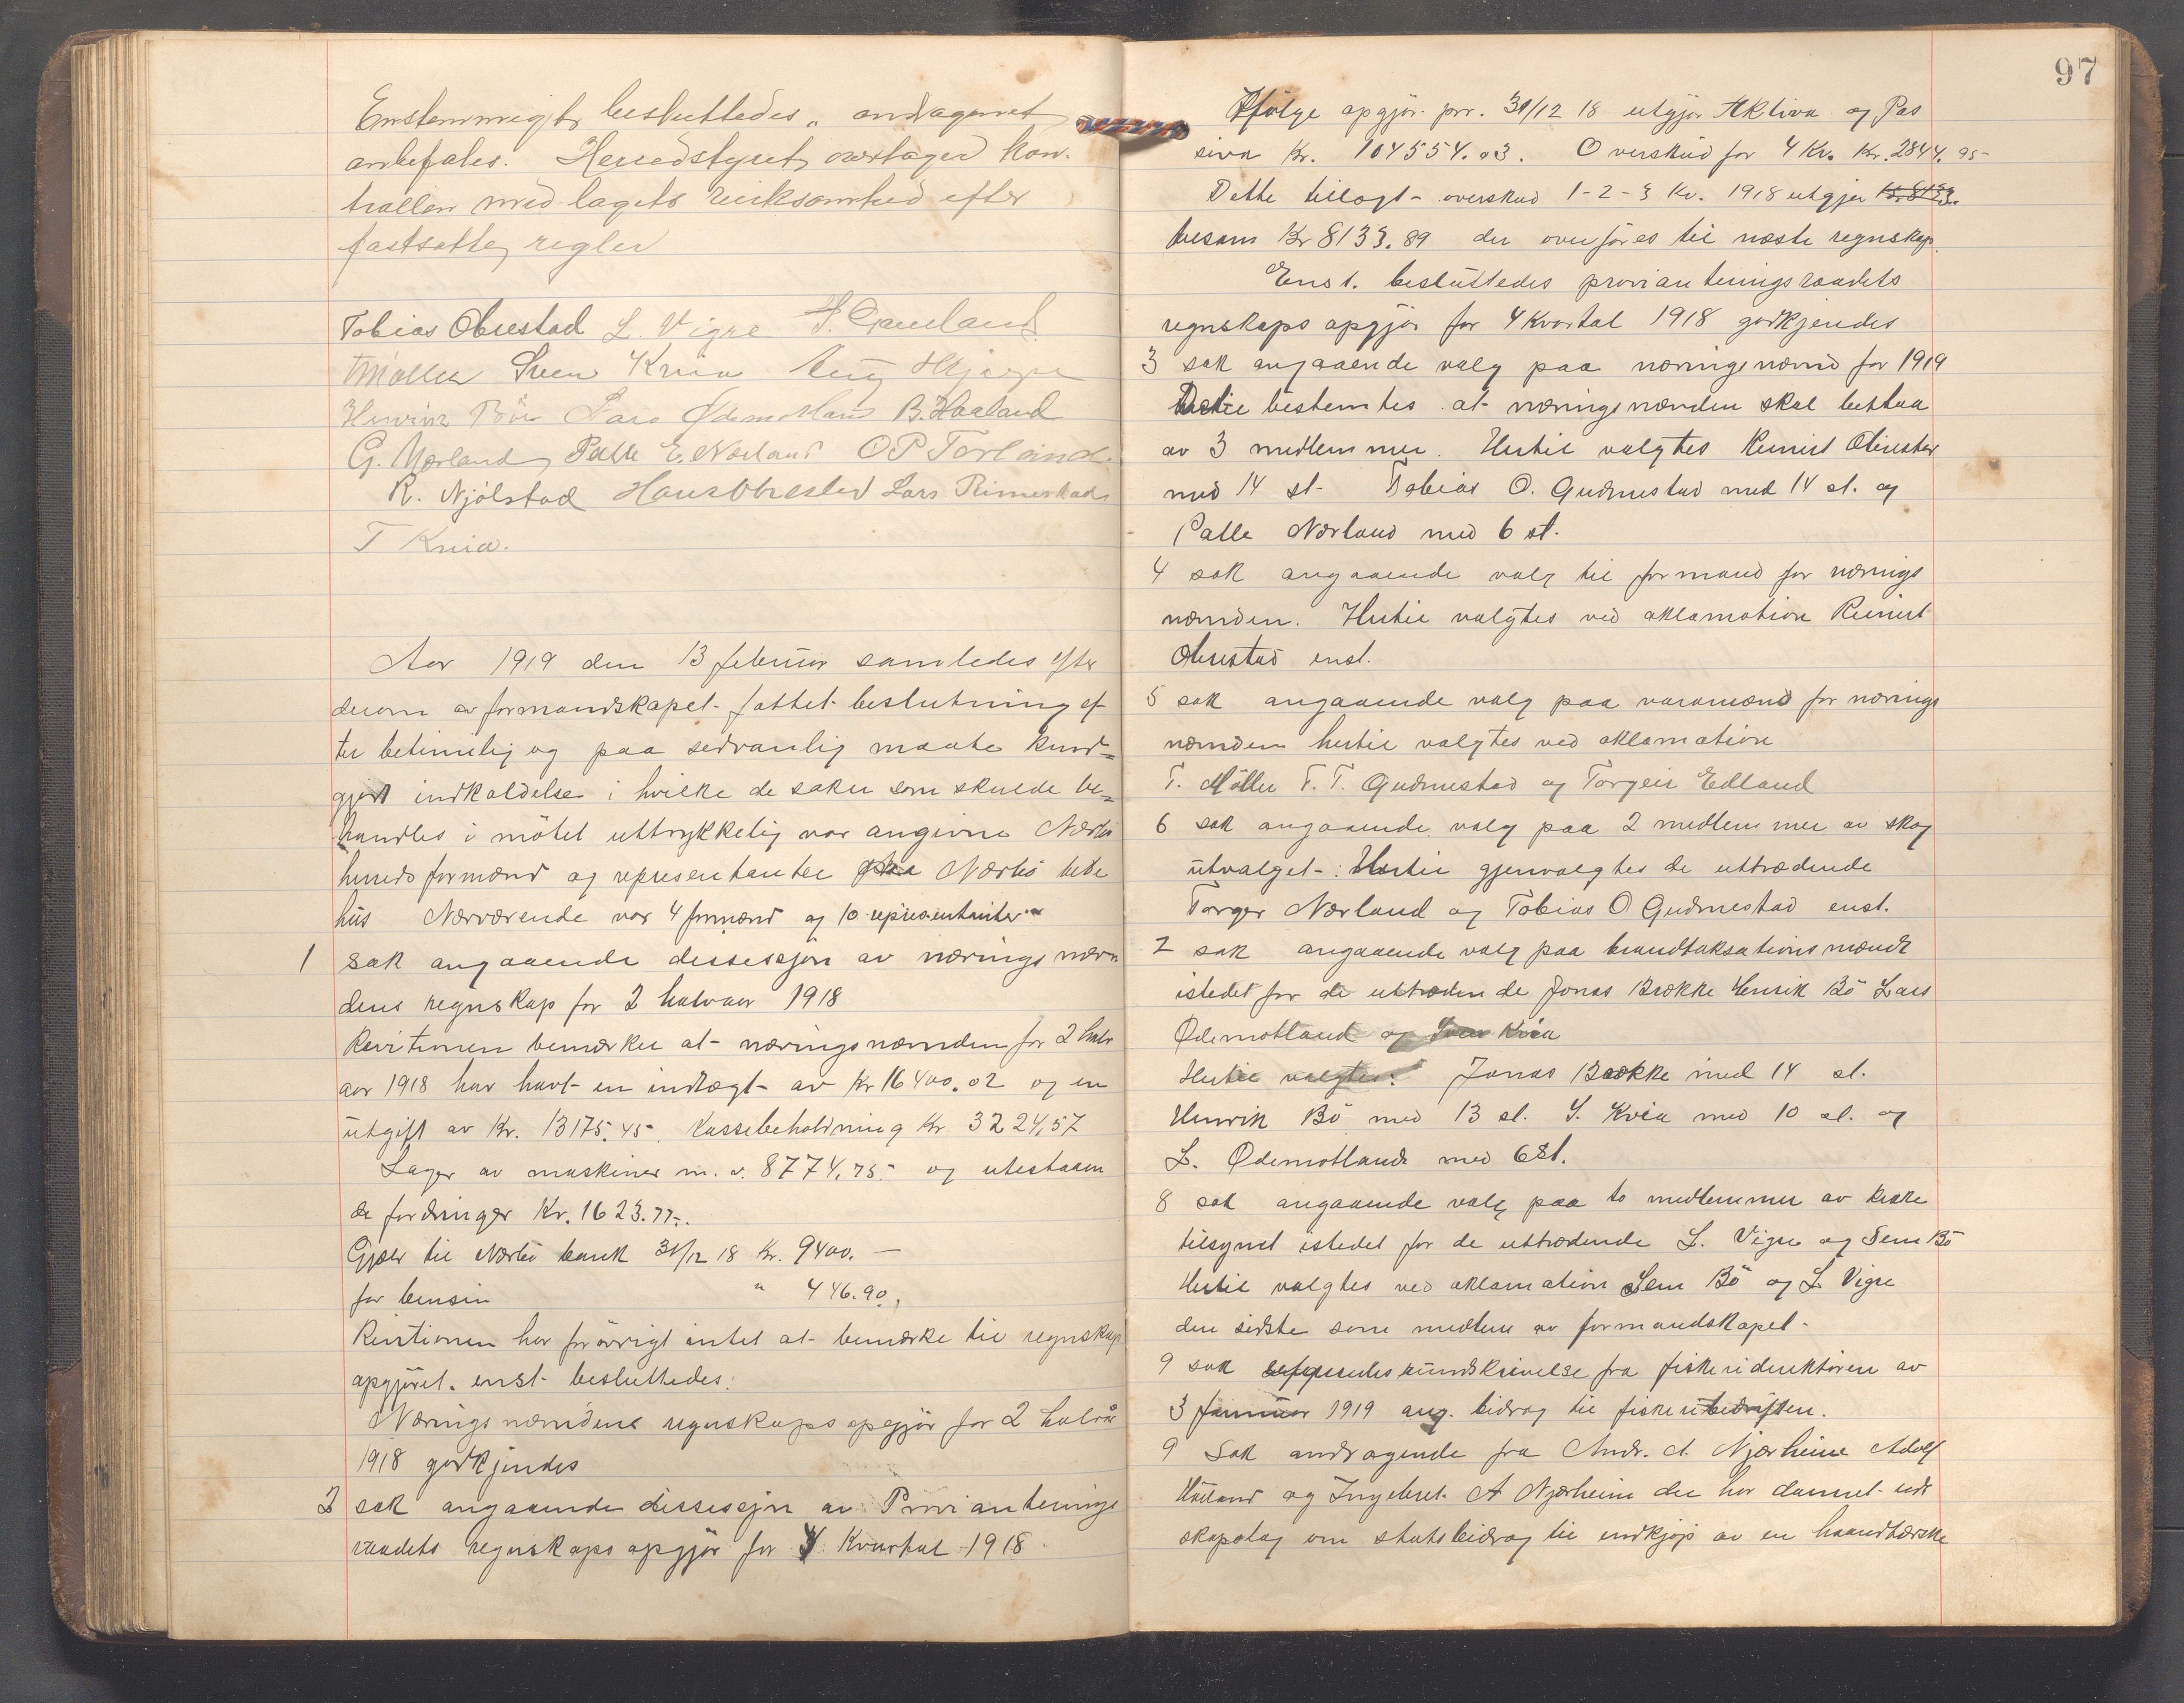 Enstemmigt besluttedes, andragenet
anbefales. Herredstyret overtager kon-
trollen med lagets virksomhed efter
fastsatte regler
Tobias Obrestad L. Vigre
T Møller Sven Kvia
Henrik Bö Lars Ödemotland B. Haaland
G. Nærland Palle E. Nærland O P Torland.
R. Njølstad Hans Obrestad Lars Rimestad
T Kvia.
Aar 1919 den 13 februar samledes efter
derom av formandskapet fattet beslutning ef
ter betimelig og paa sedvanlig maate kund=
gjort indkaldelse i hvilke de saker som skulde be=
handles i mötet uttrykkelig var angivne Nærbö
herreds formænd og representanter paa Nærbö bede
hus Nærværende var 4 formænd og 10 representanter
1 sak angaaende dessesjon av nærings næm
dens regnskap for 2 halvaar 1918
Revitionen bemærker at næringsnæmden for 2 halv
aar 1918 har havt en indtægt av Kr 16400.02 og en
utgift av Kr. 13175.45 Kassebeholdning Kr 3224,57
Lager av maskiner m. v. 8774,75 og utestaaen
de fordringer Kr. 1623.77.
Gjæld til Nærbö bank 31/12 18 Kr. 9400. —
for bensin " 446.90,
Revitionen har forövrigt intet at bemærke til regnskap
opgjöret. enst besluttedes:
Næringsnæmdens regnskaps opgjör for 2 halvår
1918 godkjendes
2 sak angaaende dessesjon av Provianterings
raadets regnskapsopgjör for 4 Kvartal 1918
97
Ifölge opgjör pr. 31/12 18 utgjör Aktiva og Pas
siva Kr. 104554.03. Overskud for 4 Kv. Kr. 2844.95
Dette tillagt overskud 1-2-3 Kv. 1918 utgjør Kr 8133.
tilsam Kr 8133.89 der överföres til næste regnskap
Enst. besluttedes provianteringsraadets
regnskaps opgjör for 4 Kvartal 1918 godkjendes
3 sak angaaende valg paa næringsnæmd for 1919
Hertil bestemtes at næringsnæmden skal bestaa
av 3 medlemmer. Hertil valgtes Reinert Obrestad
med 14 st Tobias O. Gudmestad med 14 st. og
Palle Nærland med 6 st.
4 sak angaaende valg til formand for nærings
næmden. Hertil valgtes ved aklamation Reinert
Obrestad enst.
5 sak angaaende valg paa varamænd for nærings
næmden hertil valgtes ved aklamation
T. Möller T. T. Gudmestad og Torgeir Edland
6 sak angaaende valg paa 2 medlemmer av skog
utvalget: Hertil gjenvalgtes de uttrædende
Torger Nærland og Tobias O Gudmestad enst.
7 sak angaaende valg paa brandtaksationsmænd
istedet for de uttrædende Jonas Brække Henrik Bö Lars
Ödemotland og Sven Kvia
Hertil valgtes: Jonas Brække med 14 st.
Henrik Bö med 13 st. S. Kvia med 10 st. og
L. Ödemotland med 6 st.
8 sak angaaende valg paa to medlemmer av kirke
tilsynet istedet for de uttrædende L. Vigre og Sem Bö
Hertil valgtes ved aklamation Sem Bö og L Vigre
den sidste som medlem av formandskapet.
9 sak refereredes rundskrivelse fra fiskeridirektören av
3 januar 1919 ang. bidrag til fiskeribedriften.
9 Sak andragende fra Andr. A. Njærheim Adolf
Höiland og Ingebret A Njærheim der har dannet sels
skapslag om statsbidrag til indkjöp av en haandtærske